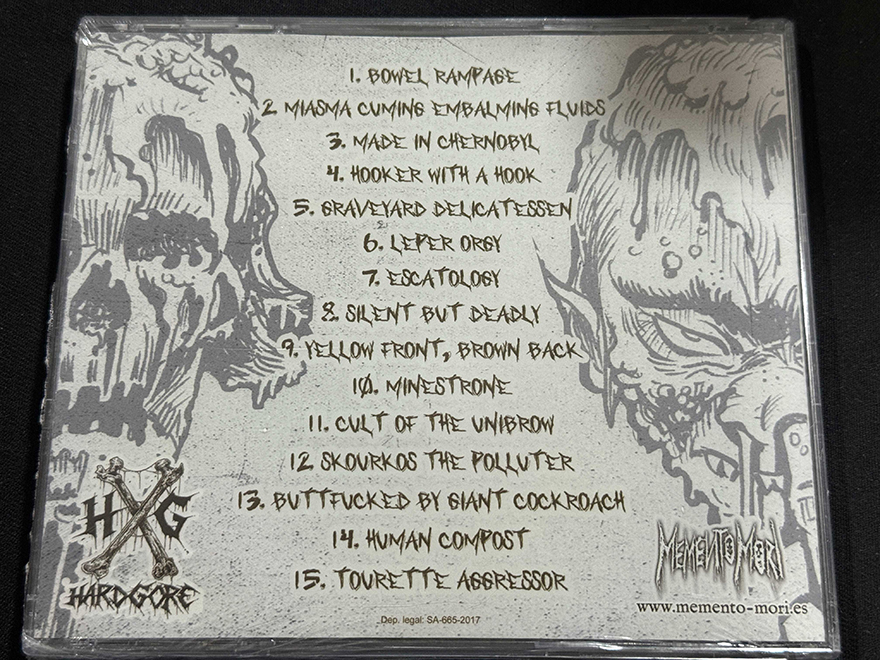 1. BOWEL RAMPAGE
2 MIASMA CUMING EMBALMING FLUIDS
3. MADE IN CHERNOBYL
4. HOOKER WITH A HOOK
5. GRAVEYARD DELICATESSEN
6. LEPER ORGY
7. ESCATOLOGY
8. SILENT BUT DEADLY
9. YELLOW FRONT, BROWN BACK
10. MINESTRONE
11. CULT OF THE UNIBROW
12 SKOURKOS THE POLLUTER
13. BUTTFUCKED BY GIANT COCKROACH
14. HUMAN COMPOST
15. TOURETTE AGGRESSOR
HXG
HARDGORE
MEMENTO MORI
www.memento-mori.es
Dep. legal: SA-665-2017